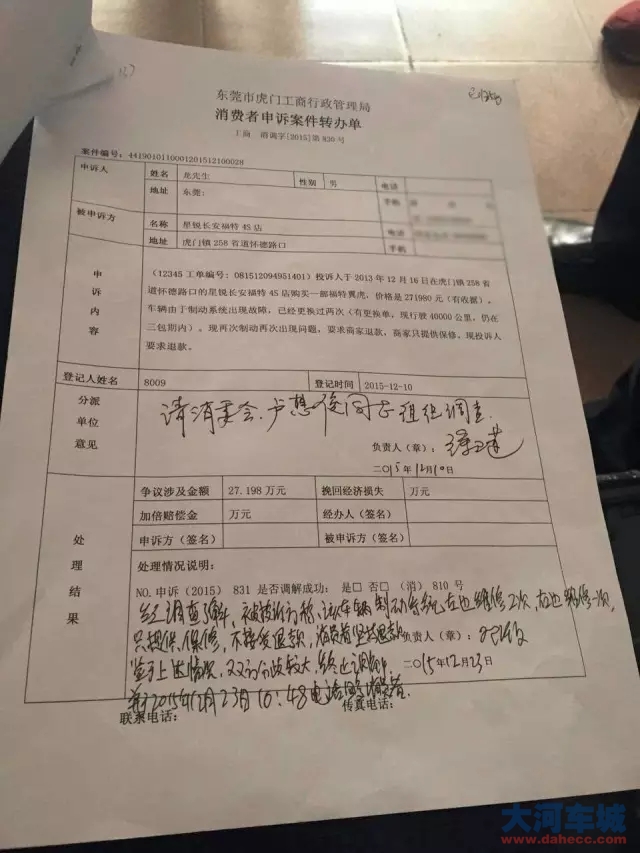 东莞市虎门工商行政管理局
消费者申诉案件转办单
工商 消调字[2015]第820号
案件编号：441901011000120151210​0028
申诉人 姓名 龙先生 性别 男 电话
地址 东莞： 手机
被申诉方 名称 星锐长安福特4S店 电话
地址 虎门镇258省道怀德路口 手机
申诉内容
（12345工单编号：081512094951401）投诉人于2013年12月16日在虎门镇258省
道怀德路口的星锐长安福特4S店购买一部福特翼虎，价格是271980元（有收据）。
车辆由于制动系统出现故障，已经更换过两次（有更换单，现行驶40000公里，仍在
三包期内）。现再次制动再次出现问题，要求商家退款，商家只提供保修，现投诉人
要求退款。
登记人姓名 8009 登记时间 2015-12-10
分派单位意见
请消委会 卢慧俊同志组织调查.
负责人（章）：
二〇15年12月10日
处理结果
争议涉及金额 27.198万元 挽回经济损失 万元
加倍赔偿金 万元 经办人（签名）
申诉方（签名） 被申诉方（签名）
处理情况说明：
NO.申诉（2015） 831 是否调解成功： 是□ 否□ （消） 810 号
经调查了解，被投诉方称，该车辆制动系统左边维修2次，右边维修一次，
只提供保修，不接受退款，消费者坚持退款 负责人（章）：
鉴于上述情况，双方分歧较大，终止调解. 二〇15年12月23日
并于2015年12月23日10:48电话 消费者.
联系电话： 传真电话：
大河车城
www.dahecc.com